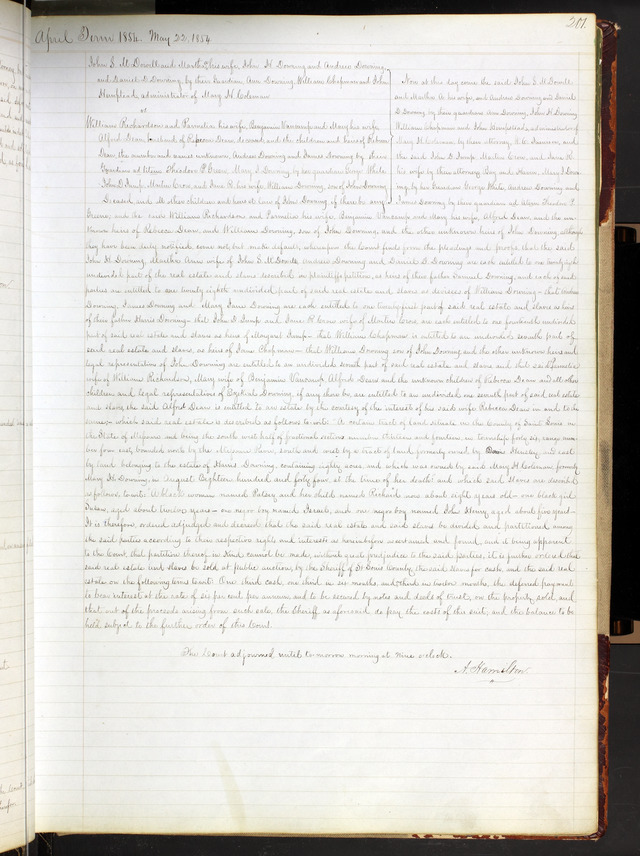 201.
April Term 1854. May 22. 1854
John S. McDowell and Martha his wife, John H Downing and Andrew Downing,
and Daniel D Downing, by their Guardian Ann Downing, William Chapman and John
Hempstead, administrator of Mary H. Coleman
vs
William Richardson and Parmelia his wife, Benjamin Vancamp and Mary his wife
Alfred Dean, husband of Rebecca Dean, deceased, and the children and heirs of Rebecca
Dean, the number and names unknown, Andrew Downing and James Downing by their
Guardian ad litem Theodore P Greene, Mary J. Downing by her guardian George White
John D. Jump, Martin Crow, and Jane R. his wife, William Downing, son of John Downing
Deceased, and the other children and heirs at law of John Downing, if there be any
Now at this day come the said John S. McDowell
and Martha A. his wife, and Andrew Downing and Daniel
D Downing by their guardian Ann Downing, John H. Downing
William Chapman and John Hempstead, administrator of
Mary H. Coleman, by their attorney, and
the said John D. Jump, Martin Crow, and Jane R.
his wife by their attorney and Mary J. Down-
ing by her Guardian George White, Andrew Downing and
James Downing by their guardian ad litem Theodore P.
Greene, and the said William Richardson and Parmelia his wife, Benjamin Vancamp and Mary his wife, Alfred Dean, and the un-
known heirs of Rebecca Dean, and William Downing, son of John Downing, and the other unknown heirs of John Downing, although
they have been duly notified come not, but make default, whereupon the Court finds from the pleadings and proofs that the said
John H. Downing, Martha Ann wife of John S. McDowell, Andrew Downing and Daniel D. Downing are each entitled to one twenty eighth
undivided part of the real estate and slaves described in plaintiffs petition, as heirs of their father Samuel Downing, and each of said
parties are entitled to one twenty eighth undivided part of said real estate and slaves as devisees of William Downing - that Andrew
Downing, James Downing and Mary Jane Downing are each entitled to one twenty first part of said real estate and slaves as heirs
of their father Harris Downing - that John D. Jump and Jane R. Crow wife of Martin Crow, are each entitled to one fourteenth undivided
part of said real estate and slaves as heirs of Margaret Jump - that William Chapman is entitled to an undivided seventh part of
said real estate and slaves, as heir of Jane Chapman - that William Downing son of John Downing and the other unknown heirs and
legal representatives of John Downing are entitled to an undivided seventh part of said real estate and slaves and that said Parmelia
wife of William Richardson, Mary wife of Benjamin Vancamp, Alfred Dean and the unknown children of Rebecca Dean and all other
children and legal representatives of Downing, if any there be, are entitled to an undivided one seventh part of said real estate
and slaves, the said Alfred Dean is entitled to an estate by the courtesy of the interest of his said wife Rebecca Dean in and to the
same - which said real estate is described as follows to wit: A certain tract of land situate in the County of Saint Louis in
the State of Missouri and being the south west half of fractional sections numbers thirteen and fourteen, in township forty six, range num-
ber four east, bounded north by the Missouri River, south and west by a tract of land formerly owned by and east
by land belonging to the estate of Harris Downing, containing eighty acres, and which was owned by said Mary H. Coleman, formerly
Mary H. Downing, in August Eighteen hundred and forty four, at the time of her death, and which said slaves are described
as follows, to wit: A black woman named Patsey and her child named Richard now about eight years old - one black girl
Susan, aged about twelve years - one negro boy named and one negro boy named John Henry, aged about five years -
It is therefore, ordered adjudged and decreed that the said real estate and said slaves be divided and partitioned among
the said parties according to their respective rights and interests as hereinbefore ascertained and found, and it being apparent
to the Court, that partition thereof in kind cannot be made, without great prejudice to the said parties, it is further ordered that
said real estate and slaves be sold at public auction, by the Sheriff of St Louis County, the said slaves for cash, and the said real
estate on the following terms to wit: One third cash, one third in six months, and one third in twelve months, the deferred payments
to bear interest at the rate of six per cent per annum, and to be secured by notes and deeds of trust, on the property sold, and
that out of the proceeds arising from such sale, the Sheriff as aforesaid do pay the costs of this suit, and the balance to be
held subject to the further order of this Court.
The Court adjourned until to morrow morning at nine o'clock.
A. Hamilton